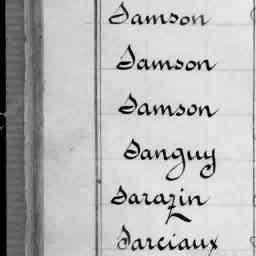 Samson
Samson
Samson
Sanguy
Sarazin
Sarciaux